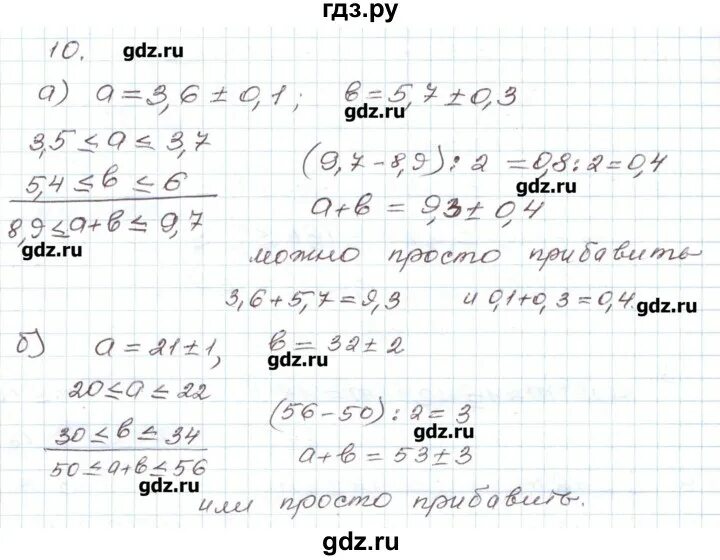 гдз.ру
10. gdz.ru
а) a = 3,6 ± 0,1; b = 5,7 ± 0,3
gdz.ru
3,5 ≤ a ≤ 3,7
5,4 ≤ b ≤ 6
8,9 ≤ a+b ≤ 9,7
gdz.ru
(9,7 - 8,9) : 2 = 0,8 : 2 = 0,4
gdz.ru
a + b = 9,3 ± 0,4
можно просто прибавить
3,6 + 5,7 = 9,3 и 0,1 + 0,3 = 0,4.
gdz.ru
б) a = 21 ± 1, b = 32 ± 2
gdz.ru
20 ≤ a ≤ 22
30 ≤ b ≤ 34
50 ≤ a+b ≤ 56
gdz.ru
(56 - 50) : 2 = 3
gdz.ru
a + b = 53 ± 3
или просто прибавить.
gdz.ru